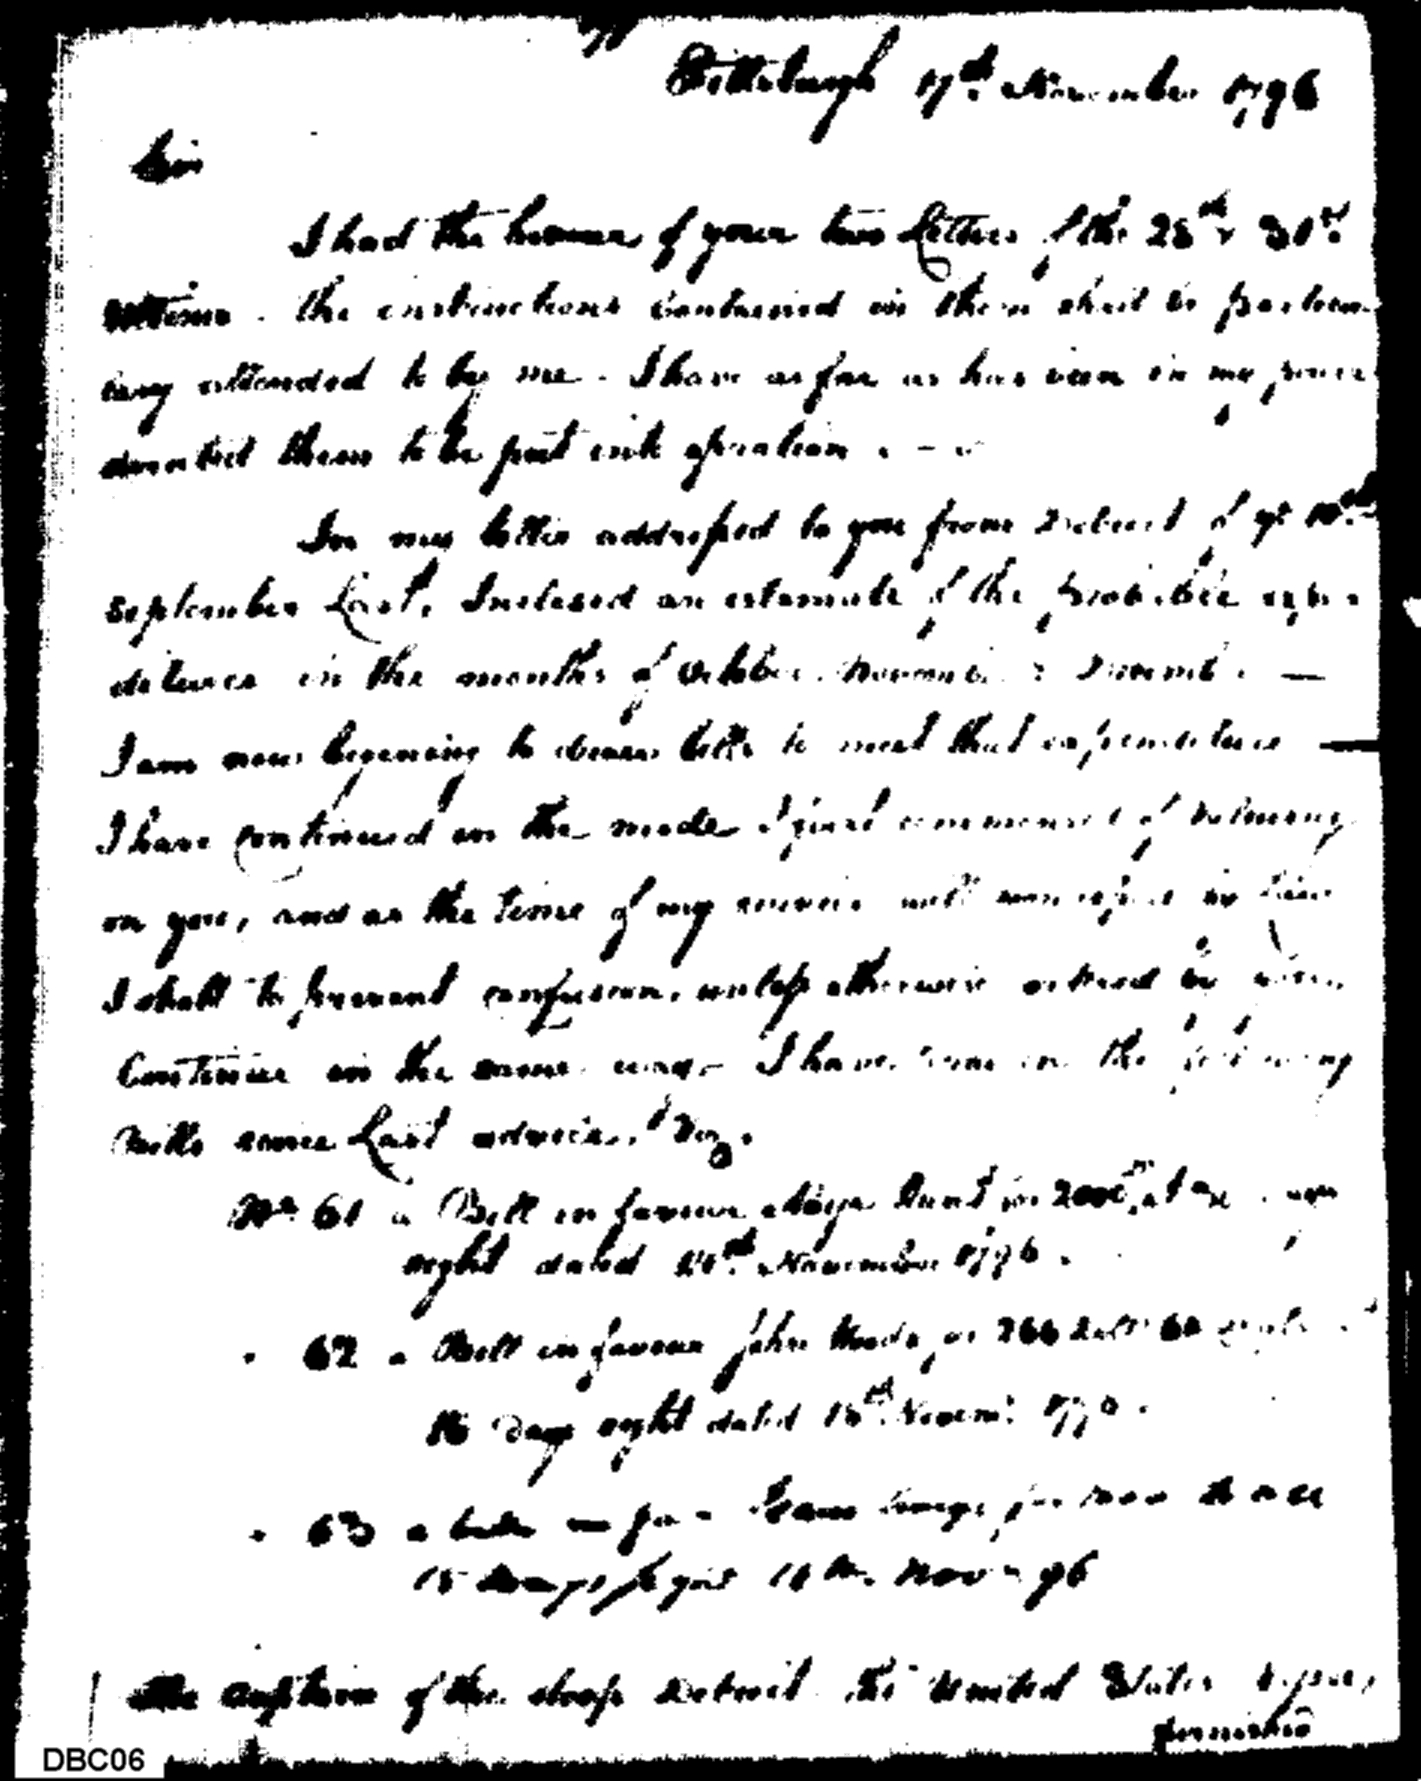 Pittsburgh 17th November 1796
Sir
I had the honour of your two Letters of the 28th &
Ultimo. the instructions contained in them shall be particu
larly attended to by me. I have as far as has been in my power
directed them to be put into operation. - -
In my letter addressed to you from Detroit of ye 10th
September Last, Inclosed an estimate of the probable expen
ditures in the months of October November & Decemb. —
I am now begening to draw bills to meet that expenditure —
I have continued in the mode I first commenced of drawing
on you, and as the time of my service will soon expire
I shall to prevent confusion, unless otherwise ordered by
Continue in the same way. I have in the following
Bills since Last advice. Viz.
No 61 a Bill in favour Majr Hunt for
sight dated November 1796.
" 62 a Bill in favour John for 266 Dolls
Days sight dated 15th Novemr.
" 63 a
15 Days 96
The Captain of the sloop Detroit the United States
furnished
DBC06